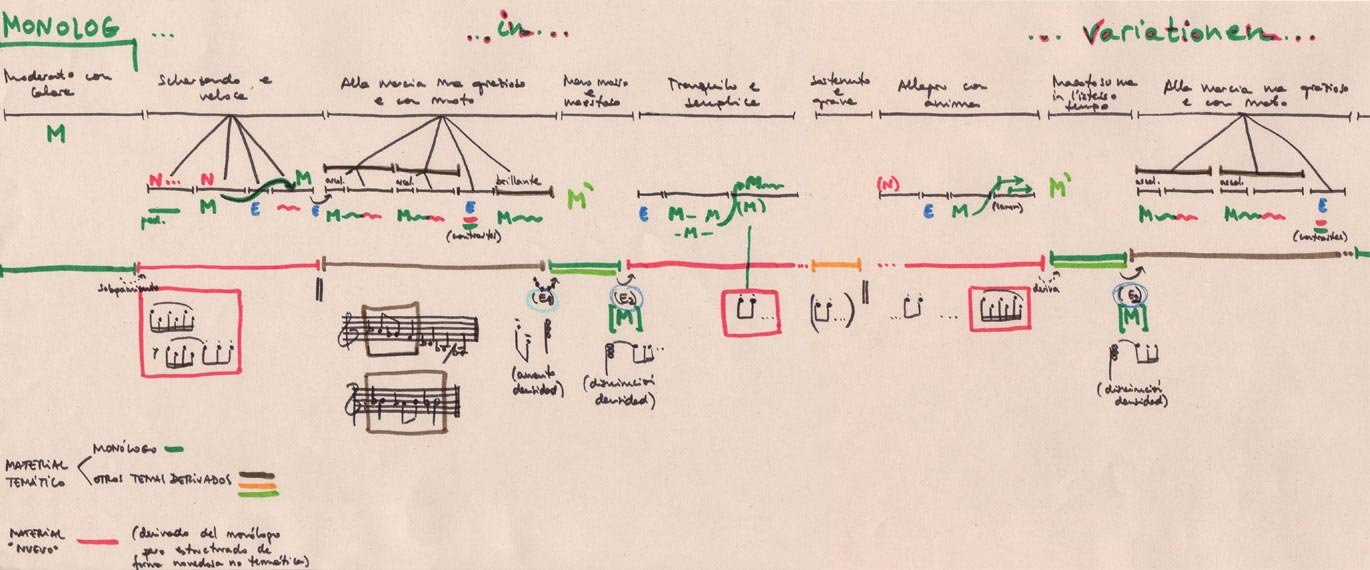 MONOLOG ... ...in... ... variationen...
Moderato con
calore
Scherzando e
veloce
Alla marcia ma gratioso
e con moto
Meno mosso
e maestoso
Tranquilo e
semplice
Sostenuto
e
grave
Allegro con
anima
Maestoso ma
in l'istesso
tempo
Alla marcia ma gratioso
e con moto
M
N... N M
M E E
ped.
brillante
M M E M
(contrastes)
M'
M
(M)
E M - M
- M -
(N)
E M (canon)
M'
M M E
(contrastes)
solapamiento
deriva
(E1)
(E2)
[M]
(aumento
densidad)
(disminución
densidad)
(E2)
[M]
(disminución
densidad)
MATERIAL
TEMÁTICO
MONÓLOGO
OTROS TEMAS DERIVADOS
MATERIAL
"NUEVO"
(derivado del monólogo
pero estructurado de
forma novedosa no temática)